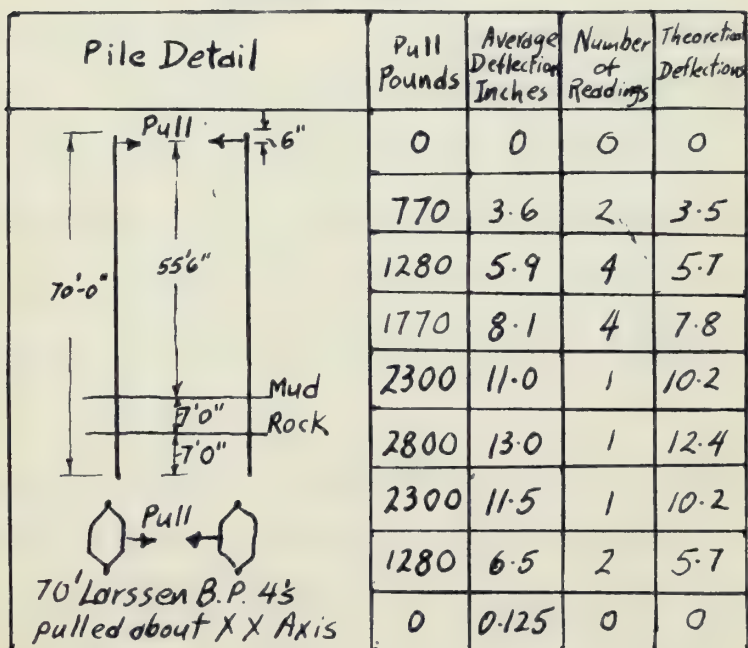 Pile Detail
Pull Pounds | Average Deflection Inches | Number of Readings | Theoretical Deflections
0 | 0 | 0 | 0
770 | 3.6 | 2 | 3.5
1280 | 5.9 | 4 | 5.7
1770 | 8.1 | 4 | 7.8
2300 | 11.0 | 1 | 10.2
2800 | 13.0 | 1 | 12.4
2300 | 11.5 | 1 | 10.2
1280 | 6.5 | 2 | 5.7
0 | 0.125 | 0 | 0
Pull
6"
70'-0"
55'6"
Mud
7'0"
Rock
7'0"
Pull
70' Larssen B.P. 4's
pulled about X X Axis